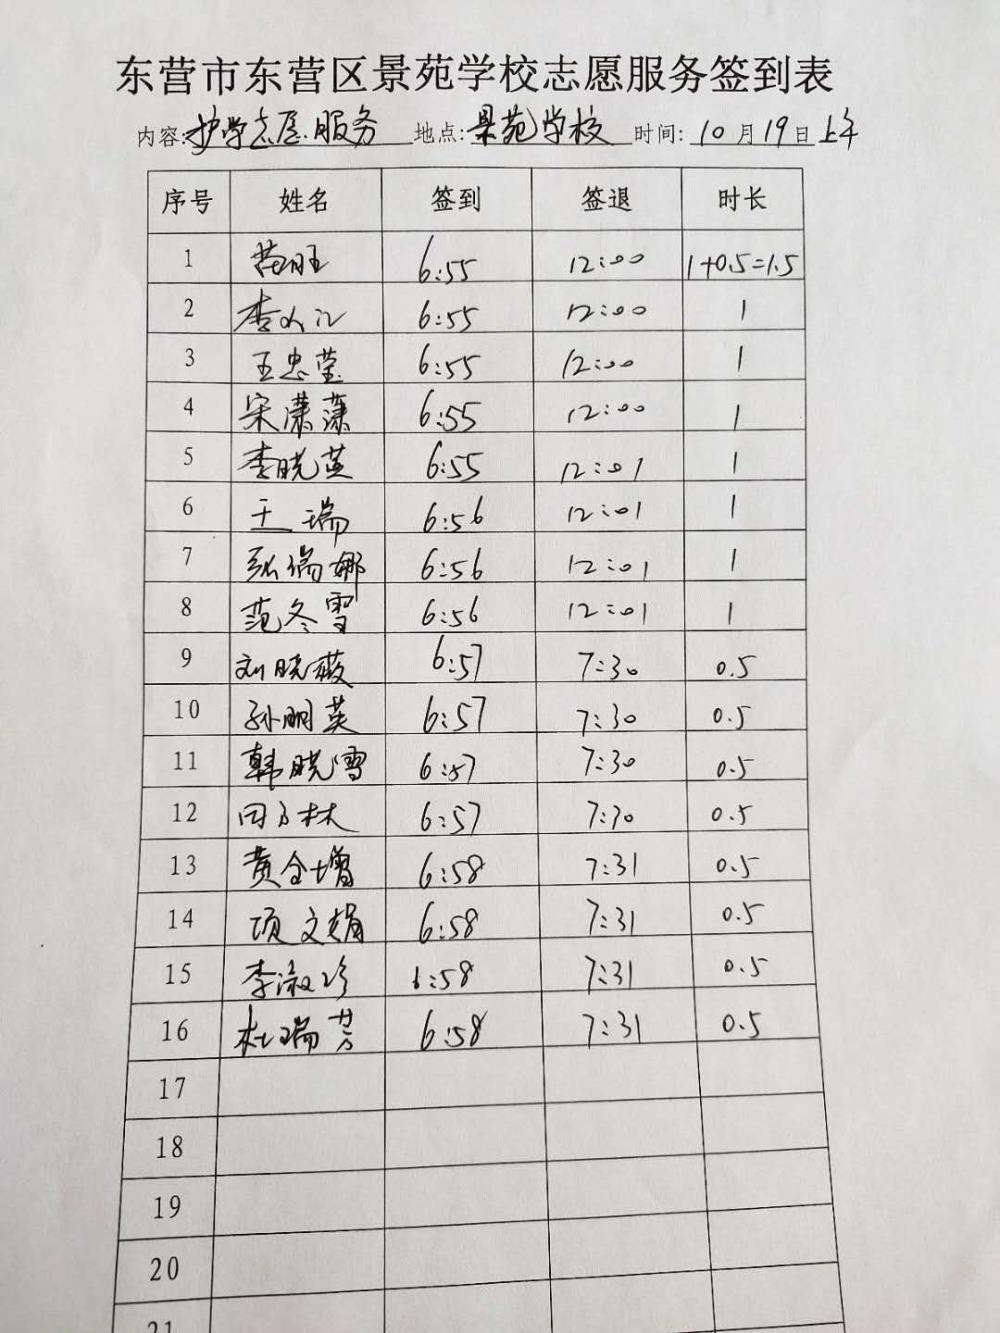 东营市东营区景苑学校志愿服务签到表
内容:护学志愿服务 地点:景苑学校 时间:10月19日上午
序号 姓名 签到 签退 时长
1 苗旺 6:55 12:00 1+0.5=1.5
2 李 6:55 12:00 1
3 王忠莹 6:55 12:00 1
4 宋潇潇 6:55 12:00 1
5 李晓英 6:55 12:01 1
6 王瑞 6:56 12:01 1
7 张瑞娜 6:56 12:01 1
8 范冬雪 6:56 12:01 1
9 刘晓薇 6:57 7:30 0.5
10 孙明英 6:57 7:30 0.5
11 韩晓雪 6:57 7:30 0.5
12 田方林 6:57 7:30 0.5
13 黄全增 6:58 7:31 0.5
14 项文娟 6:58 7:31 0.5
15 李淑珍 6:58 7:31 0.5
16 杜瑞芳 6:58 7:31 0.5
17
18
19
20
21